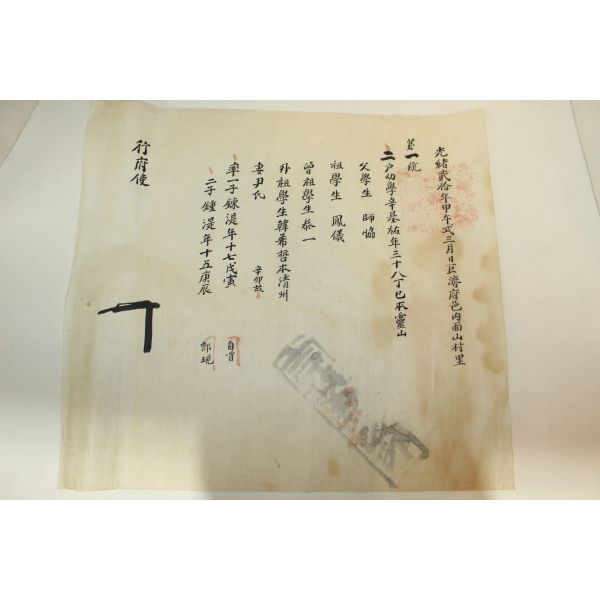 光緖貳拾年甲午式三月日巨濟府邑內面山村里
第一統
二户幼學辛基祐年三十八丁巳本靈山
父學生 師愶
祖學生 鳳儀
曾祖學生泰一
外祖學生韓希哲本淸州
妻尹氏 辛卯故
率一子鍊湜年十七戊寅 自首
二子鍾湜年十五庚辰 現
行府使